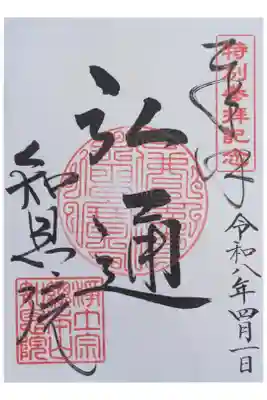 特別参拝記念
奉拝
令和八年四月一日
弘通
知恩院
浄土宗